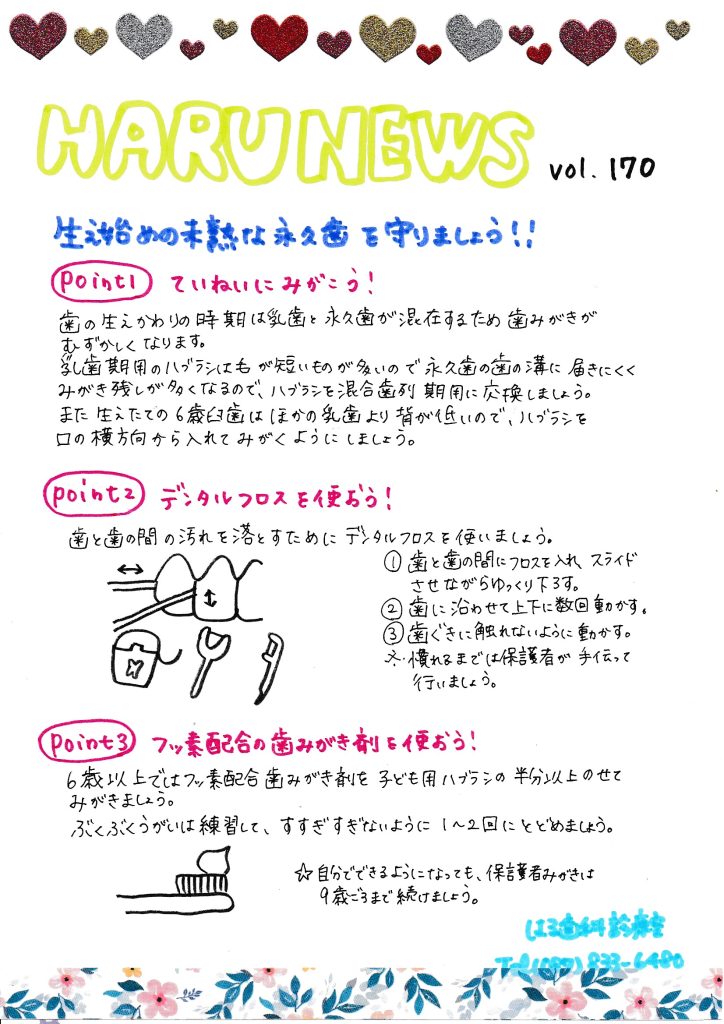 HARU NEWS vol. 170
生え始めの未熟な永久歯を守りましょう!!
point1 ていねいにみがこう!
歯の生えかわりの時期は乳歯と永久歯が混在するため歯みがきが
むずかしくなります。
乳歯期用のハブラシは毛が短いものが多いので永久歯の歯の溝に届きにくく
みがき残しが多くなるので、ハブラシを混合歯列期用に交換しましょう。
また生えたての6歳臼歯はほかの乳歯より背が低いので、ハブラシを
口の横方向から入れてみがくようにしましょう。
point2 デンタルフロスを使おう!
歯と歯の間の汚れを落とすためにデンタルフロスを使いましょう。
① 歯と歯の間にフロスを入れ、スライド
させながらゆっくり下ろす。
② 歯に沿わせて上下に数回動かす。
③ 歯ぐきに触れないように動かす。
※慣れるまでは保護者が手伝って
行いましょう。
point3 フッ素配合の歯みがき剤を使おう!
6歳以上ではフッ素配合歯みがき剤を子ども用ハブラシの半分以上のせて
みがきましょう。
ぶくぶくうがいは練習して、すすぎすぎないように1〜2回にとどめましょう。
☆自分でできるようになっても、保護者みがきは
9歳ごろまで続けましょう。
はる歯科診療室
Tel(087)833-6480